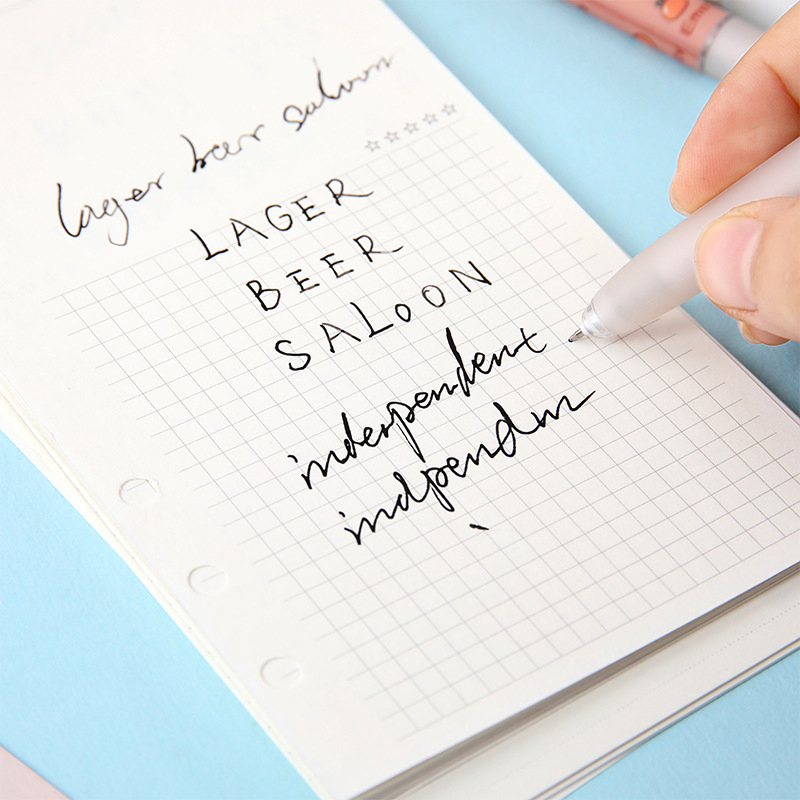 lager beer saloon
LAGER
BEER
SALOON
inderpendent